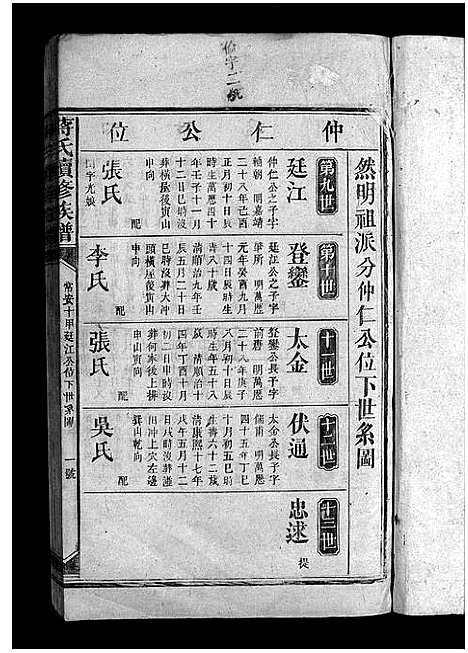 然明祖派分仲仁公位下世系圖
仲仁公位
第九世
廷江
仲仁公之子字
朝 明嘉靖
二十八年己酉
正月初十日辰
時生萬曆四十
年壬子十一月
十二日巳時歿
葬橫屋後寅山
申向
配
張氏
字光娘
第十世
登鑾
廷江公之子字
肇所 明萬曆
元年癸酉九月
十四日辰時生
壽八十歲
清順治九年壬
辰五月二十日
巳時歿葬大冲
頭橫屋後寅山
申向
配
李氏
十一世
太金
登鑾公長子字
前唐 明萬曆
二十八年庚子
八月初十日辰
時生年五十八
歲 清順治十
四年丁酉十月
初二日申時歿
葬何家後上排
申山寅向
配
張氏
十二世
伏通
太金公長子字
儒甫 明萬曆
四十五年丁巳
十月初五巳時
生壽六十二歲
清康熙十七年
戊午五月十二
日戌時歿葬謚
田冲上穴左邊
巽山乾向
配
吳氏
十三世
忠逑
提
蔣氏續修族譜
常安十甲廷江公位下世系圖
一號